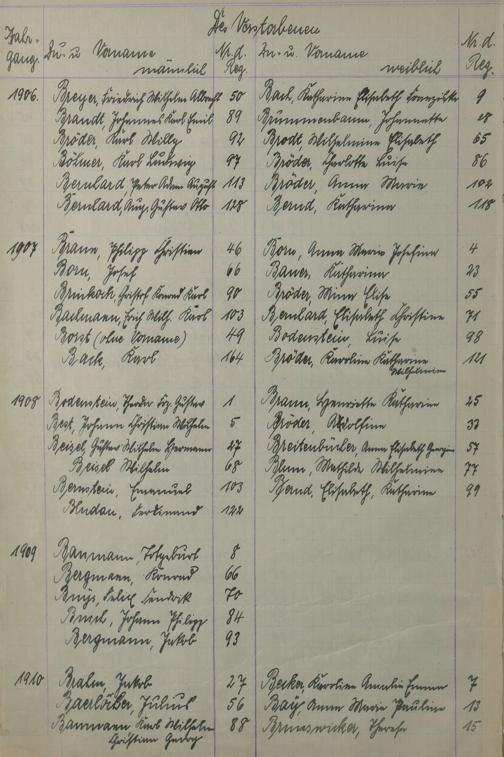 Des Verstorbenen
Jahr- gang. Zu- u. Vorname männlich Nr. d. Reg. Zu- u. Vorname weiblich Nr. d. Reg.
1906. Breyer, Friedrich Wilhelm Albrecht 50 Back, Katharina Elisabeth Franziska 9
Brandt, Johannes Karl Emil 89 Brummenbaum, Johannette 48
Bröder, Karl Willy 92 Brodt, Wilhelmine Elisabeth 65
Böhmer, Karl Ludwig 97 Bröder, Charlotte Luise 86
Bernhard, Peter Adam August 113 Bröder, Anna Maria 102
Bernhard, Aug. Gustav Otto 128 Bernd, Katharina 118
1907 Braun, Philipp Christian 46 Born, Anna Maria Josefina 4
Born, Josef 66 Bauer, Katharina 23
Gustof Konrad Karl 90 Bröder Elise 55
Bachmann, Erich Wilh. Karl 103 Bernhard, Elisabeth Christine 71
(ohne Vorname) 49 Bodenstein, Luise 98
Back, Karl 164 Bröder, Karoline Katharine 121
Wilhelmine
1908 Bodenstein, Theodor Frz. Gustav 1 Braun, Henriette Katharine 25
Best, Johann Christian Wilhelm 5 Bröder, Adolfine 33
Beizel, Gustav Wilhelm Hermann 27 Breitenbücher, Anna Elisabeth 57
Beizel Wilhelm 68 Blum, Mathilde Wilhelmine 77
Bernstein, Emanuel 103 Bernd, Elisabeth, Katharina 99
Bludau, Ferdinand 122
1909 Baumann, Totgeburt 8
Bergmann, Konrad 66
Buys, Hendrik 70
Busch, Johann Philipp 84
Bergmann, Jakob 93
1910 Brahm, Jakob 27 Becker, Karoline Amalie Emma 7
Julius 56 Bay, Anna Maria Pauline 13
Baumann Karl Wilhelm 88 Brunswicker, Therese 15
Christian Georg